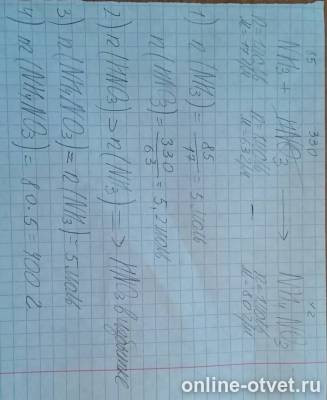 85 330 x г
NH3 + HNO3 → NH4NO3
n=1моль n=1моль — n=1моль
M=17г/м M=63г/м M=80г/м
1) n (NH3) = 85/17 = 5 моль
n (HNO3) = 330/63 = 5,2 моль
2) n (HNO3) > n (NH3) ⇒ HNO3 в избытке
3) n (NH4NO3) = n (NH3) = 5 моль
4) m (NH4NO3) = 80·5 = 400 г
online-otvet.ru